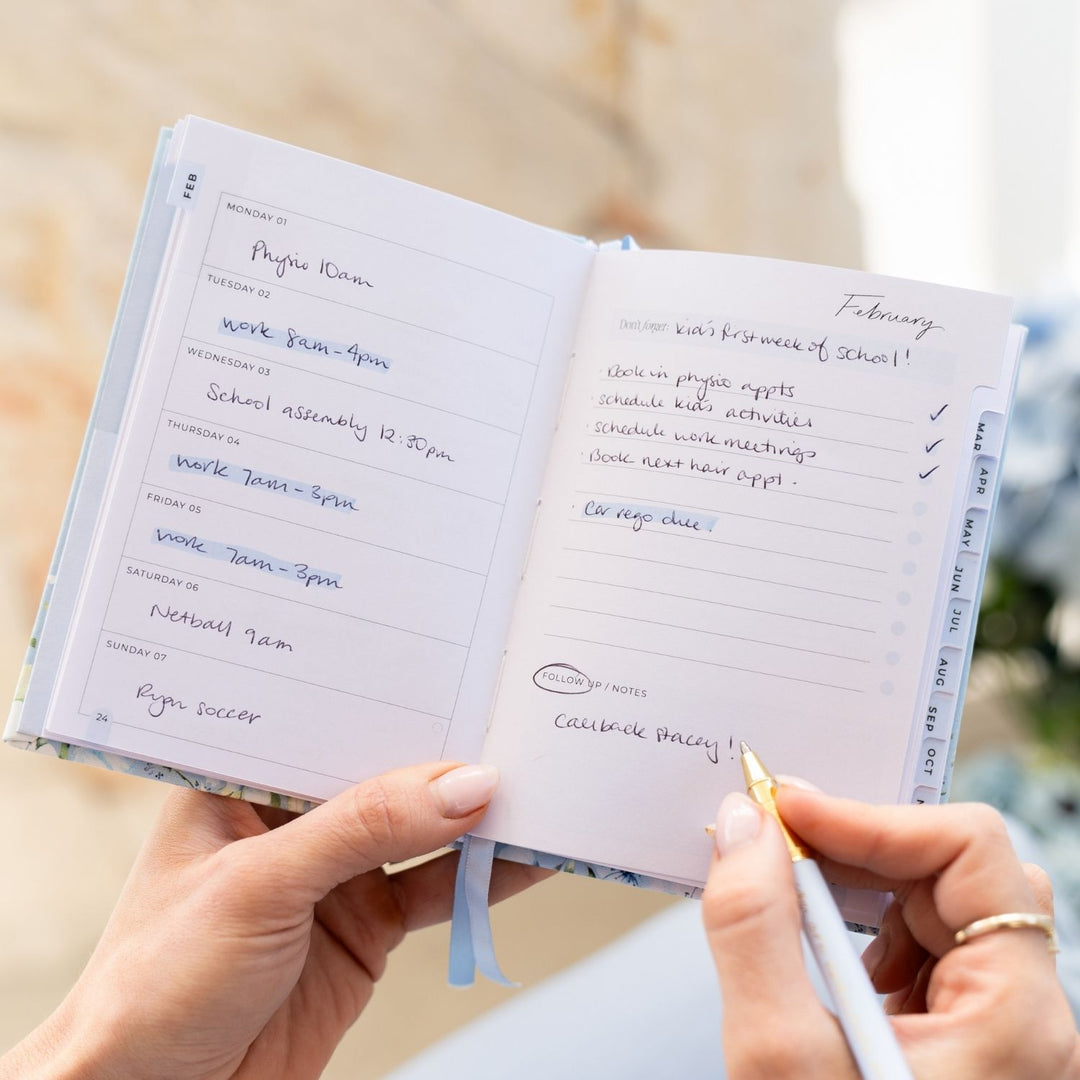 FEB
MONDAY 01
Physio 10am
TUESDAY 02
work 8am-4pm
WEDNESDAY 03
School assembly 12:30pm
THURSDAY 04
work 7am-3pm
FRIDAY 05
work 7am-3pm
SATURDAY 06
Netball 9am
SUNDAY 07
Ryan soccer
24
February
Don't forget: kid's first week of school!
· Book in physio appts ✓
· schedule kids activities ✓
· schedule work meetings ✓
· Book next hair appt.
· Car rego due!
FOLLOW UP / NOTES
Callback stacey!
MAR
APR
MAY
JUN
JUL
AUG
SEP
OCT